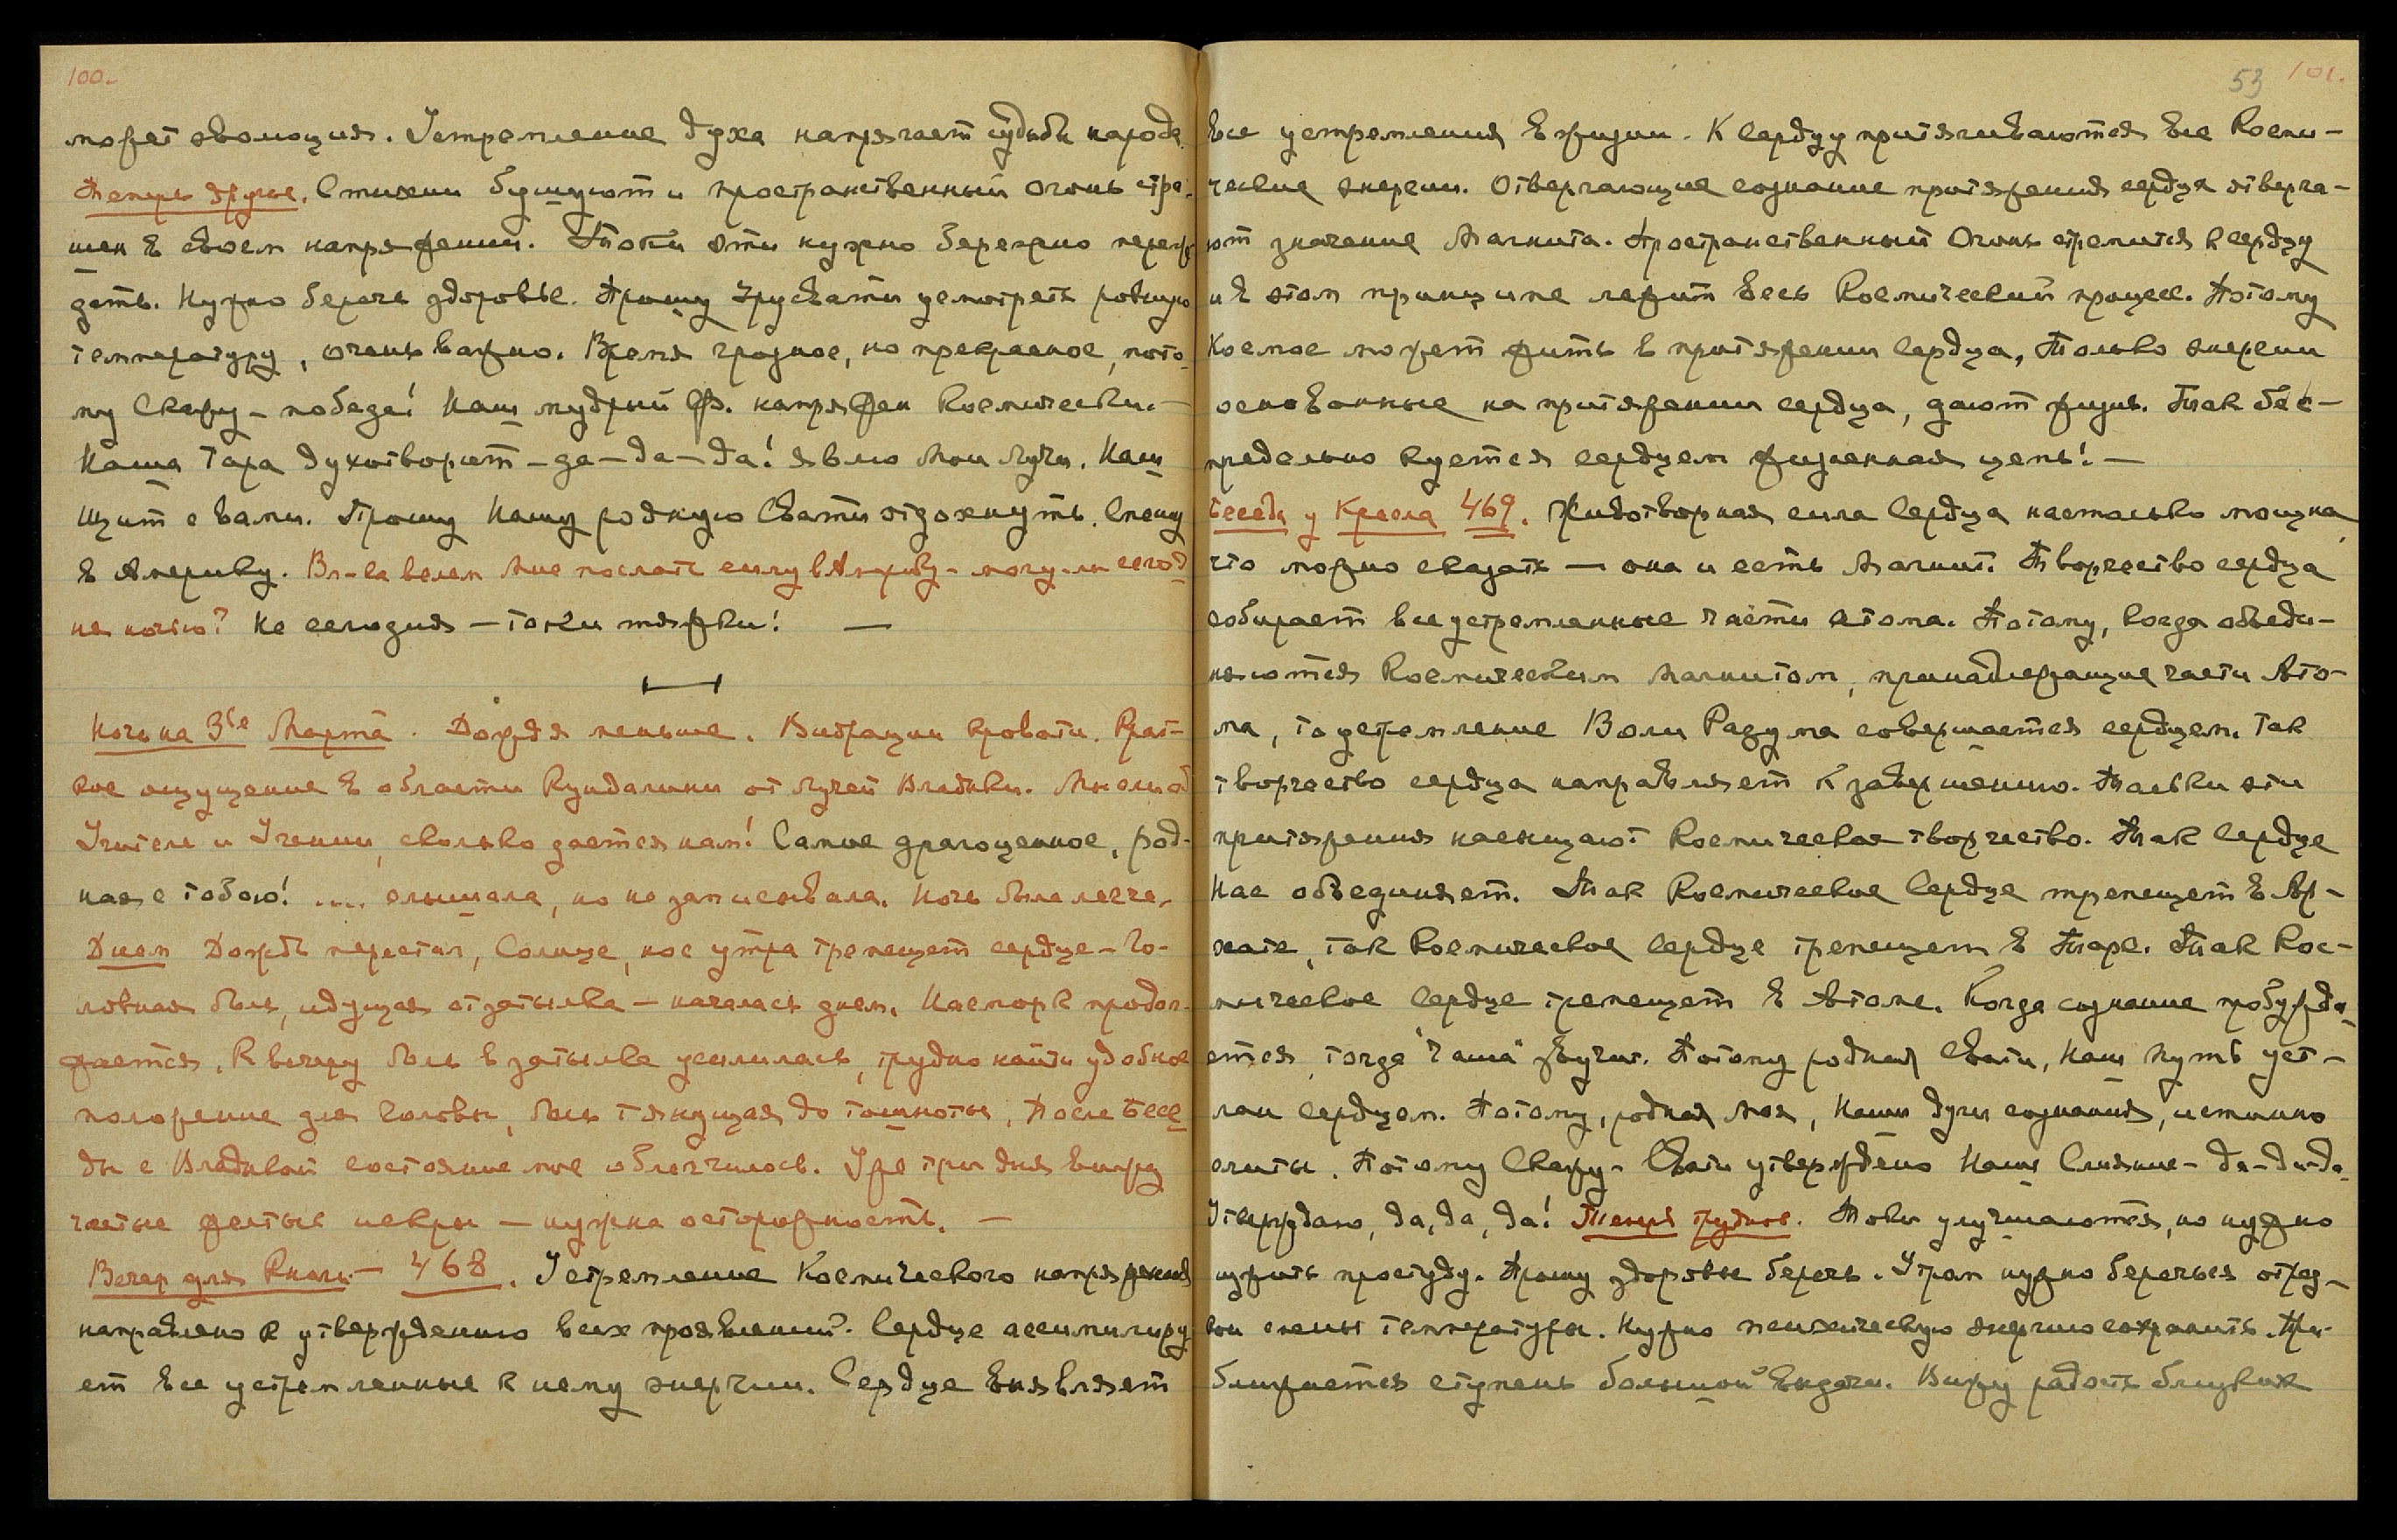 100.
может эволюция. Устремление духа напрягает судьбы народа.
Теперь другое. Стихии бушуют и пространственный огонь стра-
шен в своем напряжении. Токи эти нужно бережно переж
дать. Нужно беречь здоровье. Прошу Урусвати усмотреть ровную
температуру, очень важно. Время грозное, но прекрасное, пото-
му скажу – победа! Наш мудрый Ф. напряжен космически. –
Наша Тара духотворит – да – да – да! явлю Мои Лучи. Наш
Щит с вами. Прошу Нашу родную Свати отдохнуть. Спешу
в Америку. Вл-ка велел мне послать силу в Америку – могу-ли сегод
ня ночью? Не сегодня – токи тяжки! —
Ночь на 3ье Марта. Дождя меньше. Вибрации кровати. Крат-
кое ощущение в области Кундалини от лучей Владыки. Мысли об
Учителе и Учении, сколько дается нам! Самое драгоценное, род-
ная с тобою! .... слышала, но не записывала. Ночь была легче.
Днем Дождь перестал, Солнце, но с утра трепещет сердце – Го-
ловная боль, идущая от затылка – началась днем. Насморк продол-
жается. К вечеру боль в затылке усилилась, трудно найти удобное
положение для головы, боль тянущая до тошноты. После Бесе
ды с Владыкой состояние мое облегчилось. Уже три дня вижу
частые желтые искры – нужна осторожность. –
Вечер для Книги – 468. Устремление Космического напряжения
направлено к утверждению всех проявлений. Сердце ассимилиру
ет все устремленные к нему энергии. Сердце выявляет
53 101.
все устремления в жизни. К сердцу притягиваются все Косми-
ческие энергии. Отвергающие сознание притяжения сердца отверга-
ют значение Магнита. Пространственный Огонь стремится к сердцу
и в этом принципе лежит весь Космический процесс. Потому
Космос может жить в притяжении Сердца, Только энергии
основанные на притяжении сердца, дают жизнь. Так бес-
предельно куется сердцем жизненная цепь! –
Беседы у Кресла 469. Животворная сила Сердца настолько мощна,
что можно сказать — она и есть Магнит. Творчество сердца
собирает все устремленные части атома. Потому, когда объеди-
няются Космическим Магнитом, принадлежащие части Ато-
ма, то устремление Воли Разума совершается сердцем. Так
творчество сердца направляет к завершению. Только эти
притяжения насыщают Космическое творчество. Так Сердце
Нас объединяет. Так Космическое Сердце трепещет в Ар-
хате, так Космическое Сердце трепещет в Таре. Так Кос-
мическое Сердце трепещет в Атоме. Когда сознание пробужда-
ется, тогда "Чаша" звучит. Потому родная Свати, Наш путь уст-
лан сердцем. Потому, родная Моя, Наши духи сознания, истинно
слиты. Потому Скажу – Свати утверждено Наше Слияние – да-да-да.
Утверждаю, да, да, да! Теперь трудное. Токи улучшаются, но нужно
изжить простуду. Прошу здоровье беречь. Утром нужно беречься от рез-
кой смены температуры. Нужно психическую энергию сохранить. При-
ближается ступень большой выдачи. Вижу радость близких